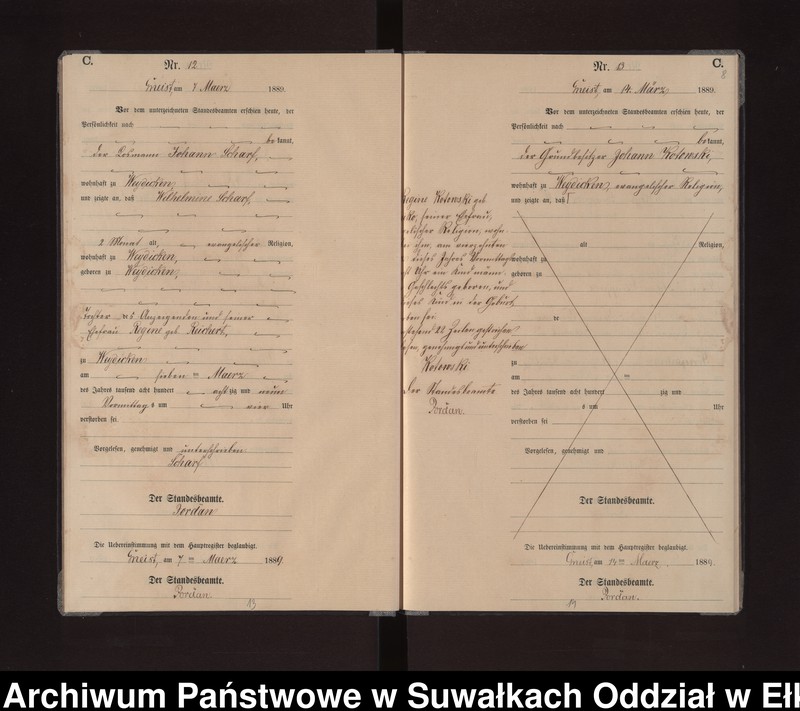 C.
Nr. 12
Gneist, am 7 Maerz 1889.
Vor dem unterzeichneten Standesbeamten erschien heute, der
Persönlichkeit nach
bekannt,
der Losmann Johann Scharf,
wohnhaft zu Weydicken,
und zeigte an, daß Wilhelmine Scharf,
2 Monat alt, evangelischer Religion,
wohnhaft zu Weydicken,
geboren zu Weydicken,
Tochter des Anzeigenden und seiner
Ehefrau Regine geb. Reichert,
zu Weydicken
am sieben ten Maerz
des Jahres tausend acht hundert achtzig und neun
Vormittags um vier Uhr
verstorben sei.
Vorgelesen, genehmigt und unterschrieben
Scharf
Der Standesbeamte.
Jordan
Die Uebereinstimmung mit dem Hauptregister beglaubigt.
Gneist, am 7. ten Maerz 1889.
Der Standesbeamte.
Jordan
13
C.
8
Nr. 13
Gneist, am 14. März 1889.
Vor dem unterzeichneten Standesbeamten erschien heute, der
Persönlichkeit nach
bekannt,
der Grundbesitzer Johann Kotowski,
wohnhaft zu Weydicken, evangelischer Religion,
und zeigte an, daß
Regine Kotowski geb
seiner Ehefrau,
Religion, wohn-
ihm, am vierzehnten
dieses Jahres Vormittags
Uhr ein Kind männ-
Geschlechts geboren, und
Kind in der Geburt
sei.
22 Zeilen gestrichen
genehmigt und unterschrieben
Kotowski
Der Standesbeamte
Jordan.
alt Religion,
wohnhaft zu
geboren zu
de
zu
am ten
des Jahres tausend acht hundert zig und
s um Uhr
verstorben sei
Vorgelesen, genehmigt und
Der Standesbeamte.
Die Uebereinstimmung mit dem Hauptregister beglaubigt.
Gneist, am 14 ten Maerz 1889.
Der Standesbeamte.
Jordan.
14
Archiwum Państwowe w Suwałkach Oddział w Ełk